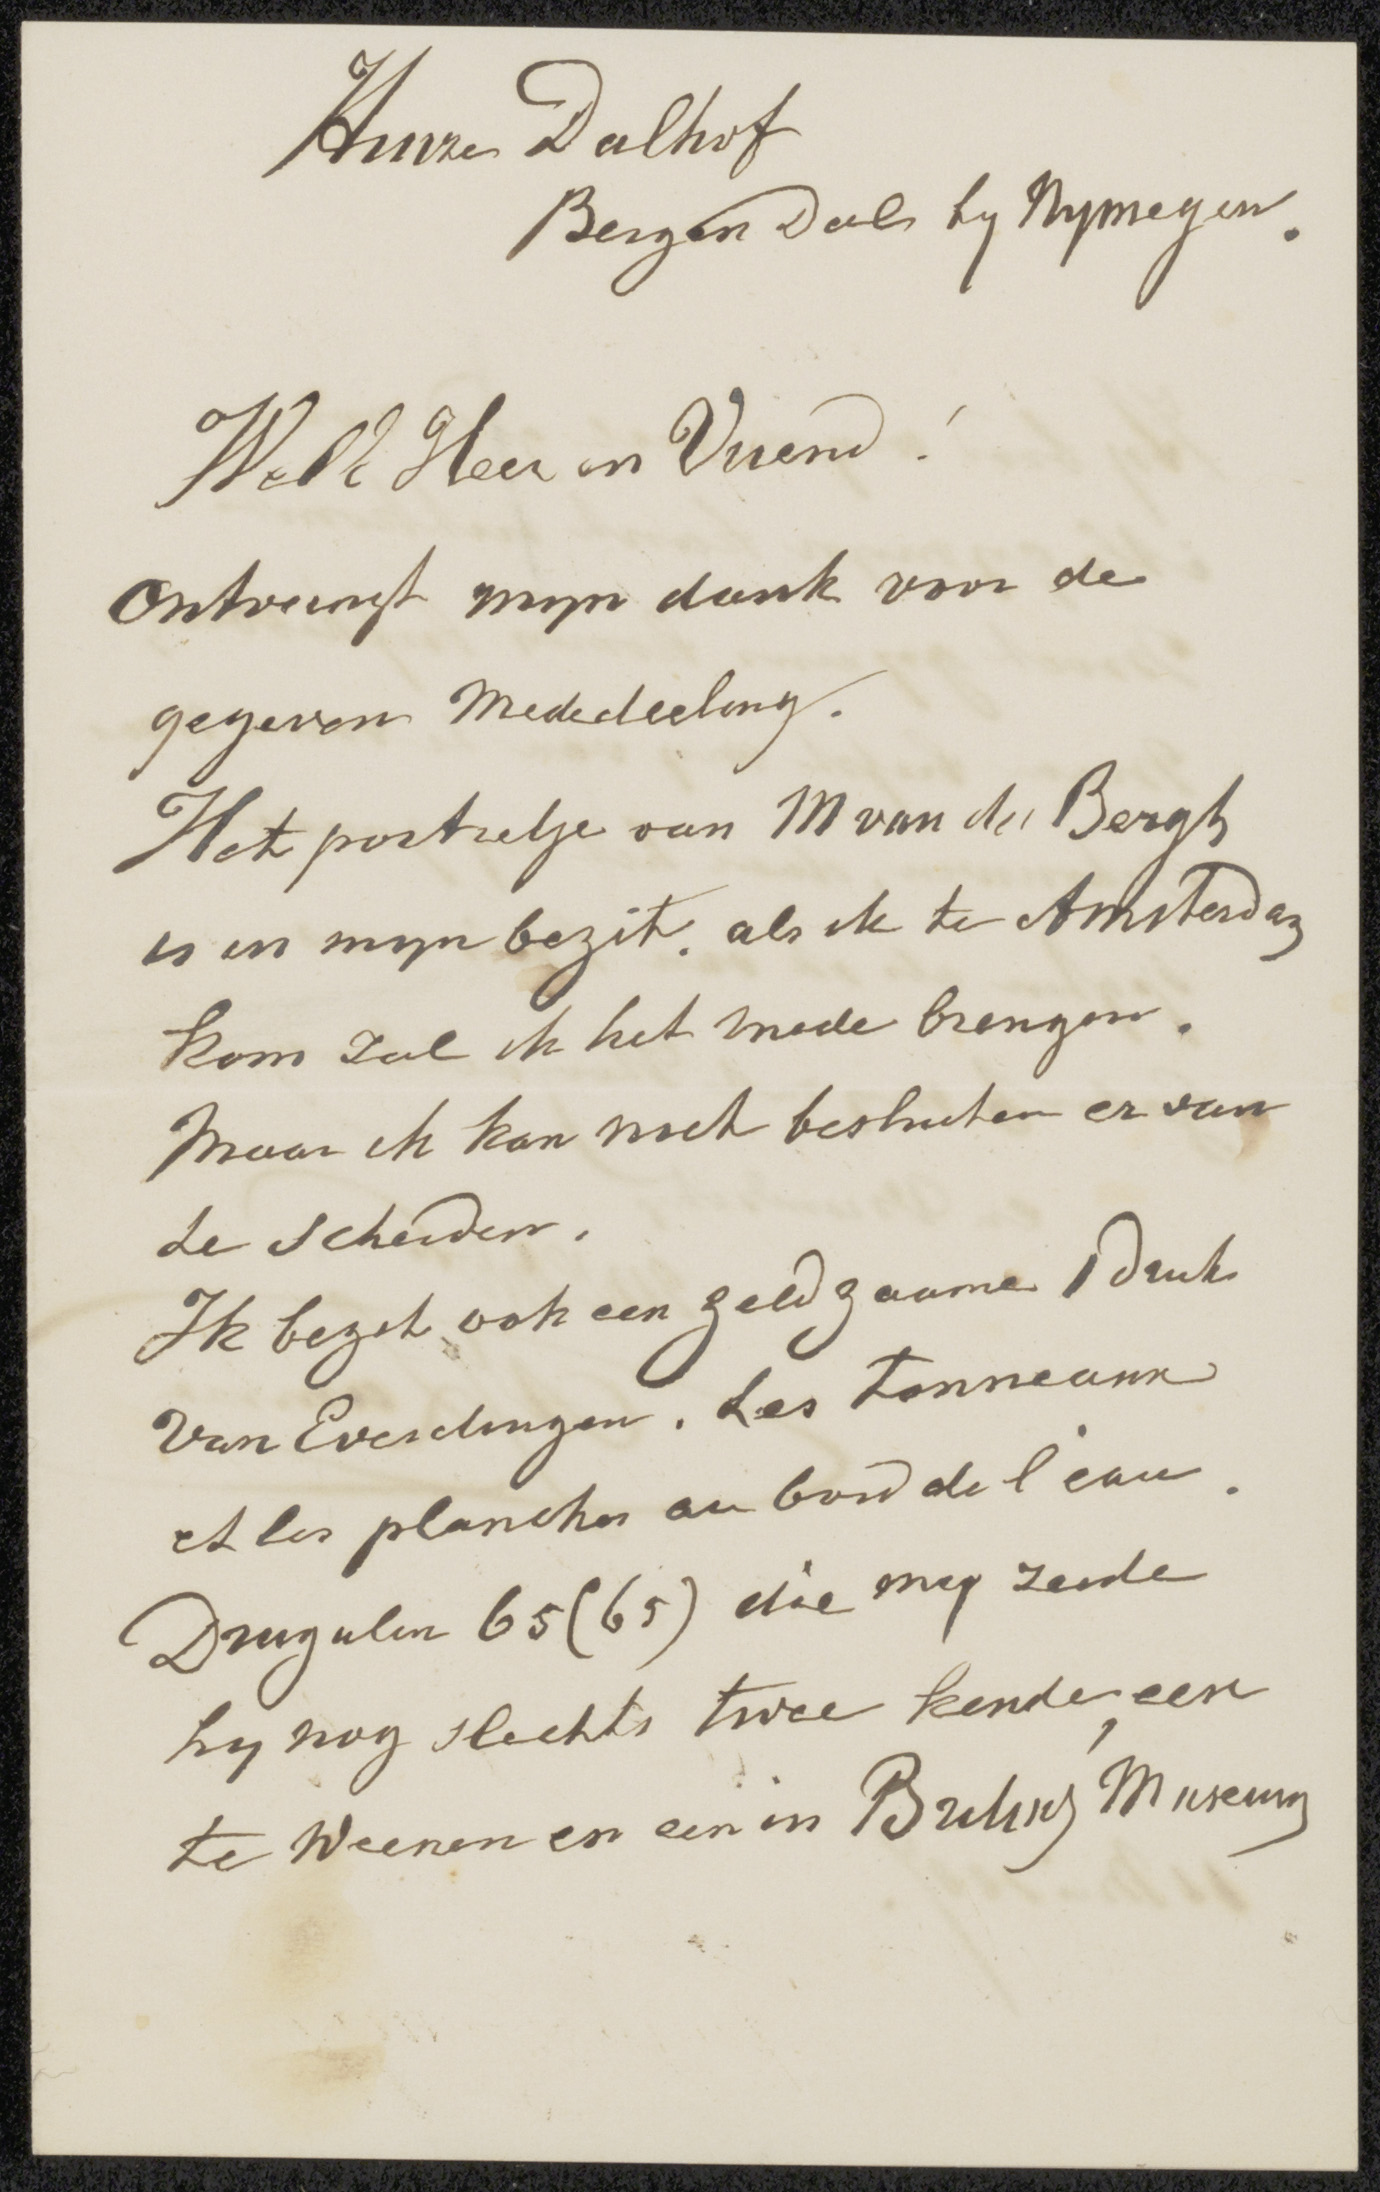 Huize Dalhof
Bergen Dal by Nymegen.
WelE Heer en Vriend!
Ontvangt myn dank voor de
gegeven Mededeeling.
Het portretje van M van der Bergh
is in myn bezit. als ik te Amsterdam
kom zal ik het mede brengen.
Maar ik kan niet besluiten er van
te scheiden.
Ik bezit ook een zeldzaame 1 druk
van Everdingen. Les tonneaux
et les planches au bord de l'eau.
Drugulin 65 (65) die my zeide
hy nog slechts twee kende, een
te Weenen en een in Museum